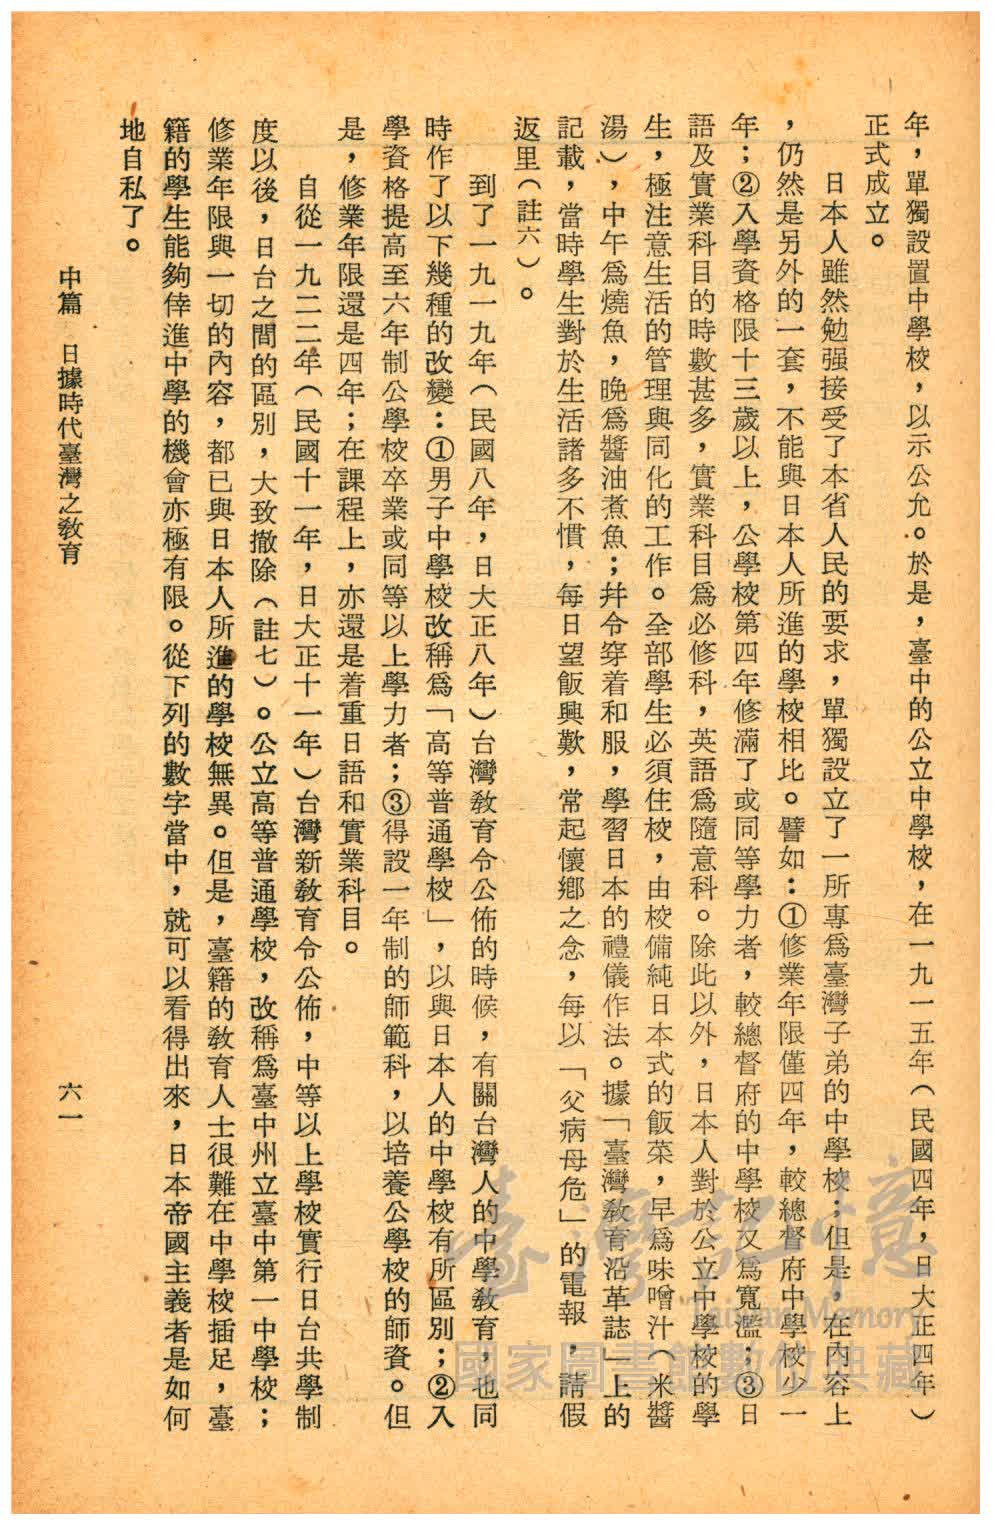 年，單獨設置中學校，以示公允。於是，臺中的公立中學校，在一九一五年（民國四年，日大正四年）
正式成立。
日本人雖然勉强接受了本省人民的要求，單獨設立了一所專爲臺灣子弟的中學校；但是，在內容上
，仍然是另外的一套，不能與日本人所進的學校相比。譬如：①修業年限僅四年，較總督府中學校少一
年；②入學資格限十三歲以上，公學校第四年修滿了或同等學力者，較總督府的中學校又爲寬濫；③日
語及實業科目的時數甚多，實業科目爲必修科，英語爲隨意科。除此以外，日本人對於公立中學校的學
生，極注意生活的管理與同化的工作。全部學生必須住校，由校備純日本式的飯菜，早爲味噌汁（米醬
湯），中午爲燒魚，晚爲醬油煮魚；幷令穿着和服，學習日本的禮儀作法。據「臺灣敎育沿革誌」上的
記載，當時學生對於生活諸多不慣，每日望飯興歎，常起懷鄉之念，每以「父病母危」的電報，請假
返里（註六）。
到了一九一九年（民國八年，日大正八年）台灣敎育令公佈的時候，有關台灣人的中學敎育，也同
時作了以下幾種的改變：①男子中學校改稱爲「高等普通學校」，以與日本人的中學校有所區別；②入
學資格提高至六年制公學校卒業或同等以上學力者；③得設一年制的師範科，以培養公學校的師資。但
是，修業年限還是四年；在課程上，亦還是着重日語和實業科目。
自從一九二二年（民國十一年，日大正十一年）台灣新敎育令公佈，中等以上學校實行日台共學制
度以後，日台之間的區別，大致撤除（註七）。公立高等普通學校，改稱爲臺中州立臺中第一中學校；
修業年限與一切的內容，都已與日本人所進的學校無異。但是，臺籍的敎育人士很難在中學校插足，臺
籍的學生能夠倖進中學的機會亦極有限。從下列的數字當中，就可以看得出來，日本帝國主義者是如何
地自私了。
中篇 日據時代臺灣之敎育
六一
臺灣記憶
Taiwan Memory
國家圖書館數位典藏